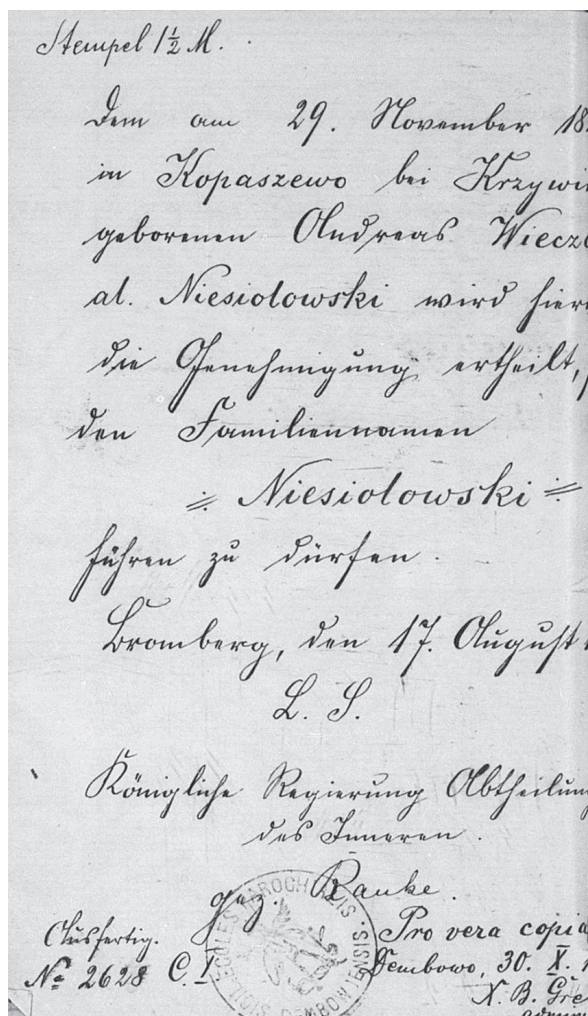 Stempel 1½ M.
Dem am 29. November 18
in Kopaszewo bei Krzywi
geborenen Andreas Wieczo
al. Niesiolowski wird hier
die Genehmigung ertheilt,
den Familiennamen
= Niesiolowski =
führen zu dürfen.
Bromberg, den 17. August
L. S.
Königliche Regierung Abtheilung
des Inneren.
gez. Ranke.
Ausfertig.
No 2628 C. I
Pro vera copia
Dembowo, 30. X.
X. B. Gre